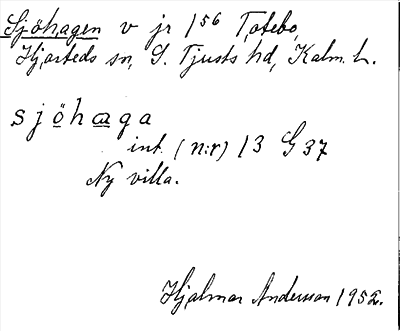 Sjöhagen v jr 1⁵⁶ Totebo,
Hjorteds sn, S. Tjusts hd, Kalm. L.
sjöhaga
int. (n:r) 13 G 37
Ny villa.
Hjalmar Andersson 1952.